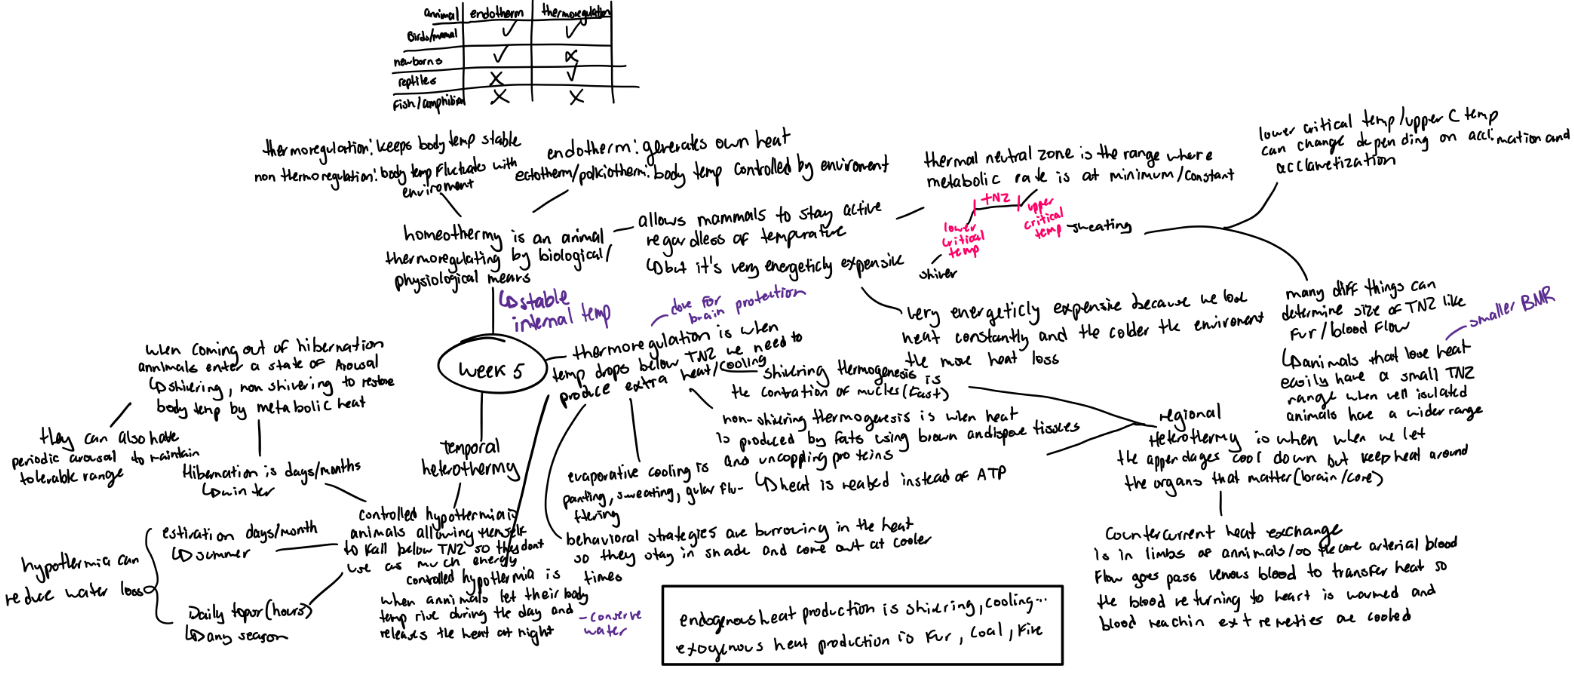 animal endotherm thermoregulation
Birds/mamal ✓ ✓
newborns ✓ X
reptiles X ✓
Fish/amphibian X X
thermoregulation: keeps body temp stable
non thermoregulation: body temp fluctuates with
enviroment
endotherm: generates own heat
ectotherm/poikiotherm: body temp controlled by enviroment
homeothermy is an animal
thermoregulating by biological/
physiological means
↳stable
internal temp
allows mammals to stay active
regardless of temperature
↳but it's very energeticly expensive
thermal neutral zone is the range where
metabolic rate is at minimum/constant
TNZ
lower
critical
temp
upper
critical
temp
shiver
sweating
lower critical temp/upper C temp
can change depending on acclimation and
acclametization
many diff things can
determine size of TNZ like
Fur/blood flow
↳animals that lose heat
easily have a small TNZ
range when well isulated
animals have a wider range
smaller BMR
very energeticly expensive because we lose
heat constantly and the colder the enviroment
the more heat loss
week 5
done for
brain protection
thermoregulation is when
temp drops below TNZ we need to
produce extra heat/cooling
shivering thermogenesis is
the contration of mucles (fast)
non-shivering thermogenesis is when heat
is produced by fats using brown andispose tissues
and uncoppling proteins
↳heat is realsed instead of ATP
evaporative cooling is
panting, sweating, gular flu-
ttering
behavioral strategies are burrowing in the heat
so they stay in shade and come out at cooler
times
regional
Heterothermy is when when we let
the appendages cool down but keep heat around
the organs that matter (brain/core)
Countercurrent heat exchange
is in limbs of annimals/as the core arterial blood
flow goes pass venous blood to transfer heat so
the blood returning to heart is warmed and
blood reachin extremeties are cooled
temporal
heterothermy
controlled hypothermia is
animals allowing themself
to fall below TNZ so they dont
use as much energy
controlled hypothermia is
when annimals let their body
temp rise during the day and
releases the heat at night
-conserve
water
when coming out of hibernation
annimals enter a state of Arousal
↳shivering, non shivering to restore
body temp by metabolic heat
they can also have
periodic arousal to maintain
tolerable range
Hibernation is days/months
↳winter
estivation days/month
↳summer
Daily topor (hours)
↳any season
hypothermia can
reduce water loss
endogenous heat production is shivering, cooling...
exogenous heat production is Fur, Coal, Fire